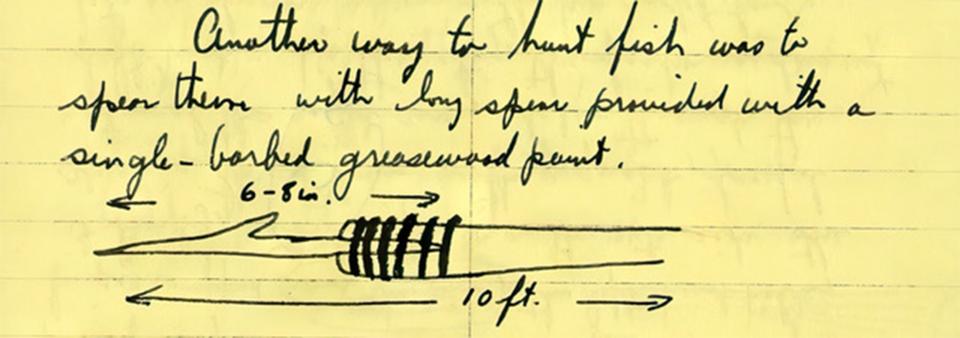 Another way to hunt fish was to
spear them with long spear provided with a
single-barbed greasewood point.
6-8in.
10 ft.